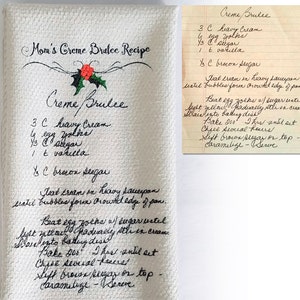 Mom's Creme Brulee Recipe
Creme Brulee
3 C heavy Cream
4 egg yolks
1/3 C sugar
1 t vanilla
1/2 C brown sugar
Heat cream in heavy saucepan
until bubbles form around edge of pan.
Beat egg yolks w/ sugar until
light yellow. Gradually stir in cream
Strain into baking dish
Bake 325° 1 hr until set
Chill several hours
Sift brown sugar on top -
Caramelize - Serve
Creme Brulee
3 C heavy Cream
4 egg yolks
1/3 C sugar
1 t vanilla
1/2 C brown sugar
Heat cream in heavy saucepan
until bubbles form around edge of pan.
Beat egg yolks w/ sugar until
light yellow. Gradually stir in cream
Strain into baking dish
Bake 325° 1 hr until set
Chill several hours
Sift brown sugar on top
Caramelize - Serve